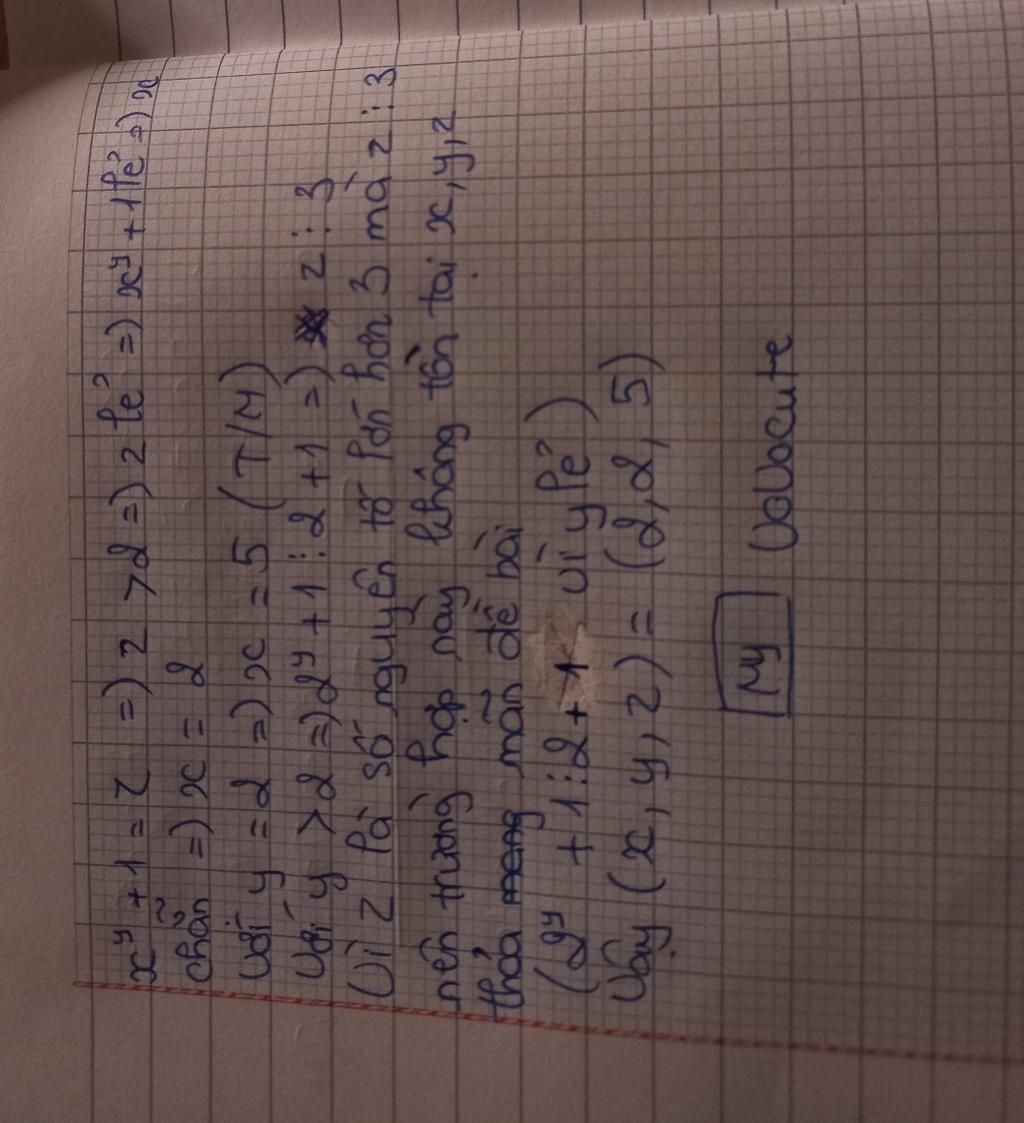 x^y + 1 = z => z > 2 => z lẻ => x^y + 1 lẻ => x
chẵn => x = 2
Với y = 2 => x = 5 (T/M)
Với y > 2 => 2^y + 1 ⋮ 2 + 1 => z ⋮ 3
Vì z là số nguyên tố lớn hơn 3 mà z ⋮ 3
nên trường hợp này không tồn tại x, y, z
thỏa mãn đề bài
(2^y + 1 ⋮ 2 + 1 vì y lẻ)
Vậy (x, y, z) = (2, 2, 5)
My Volocute